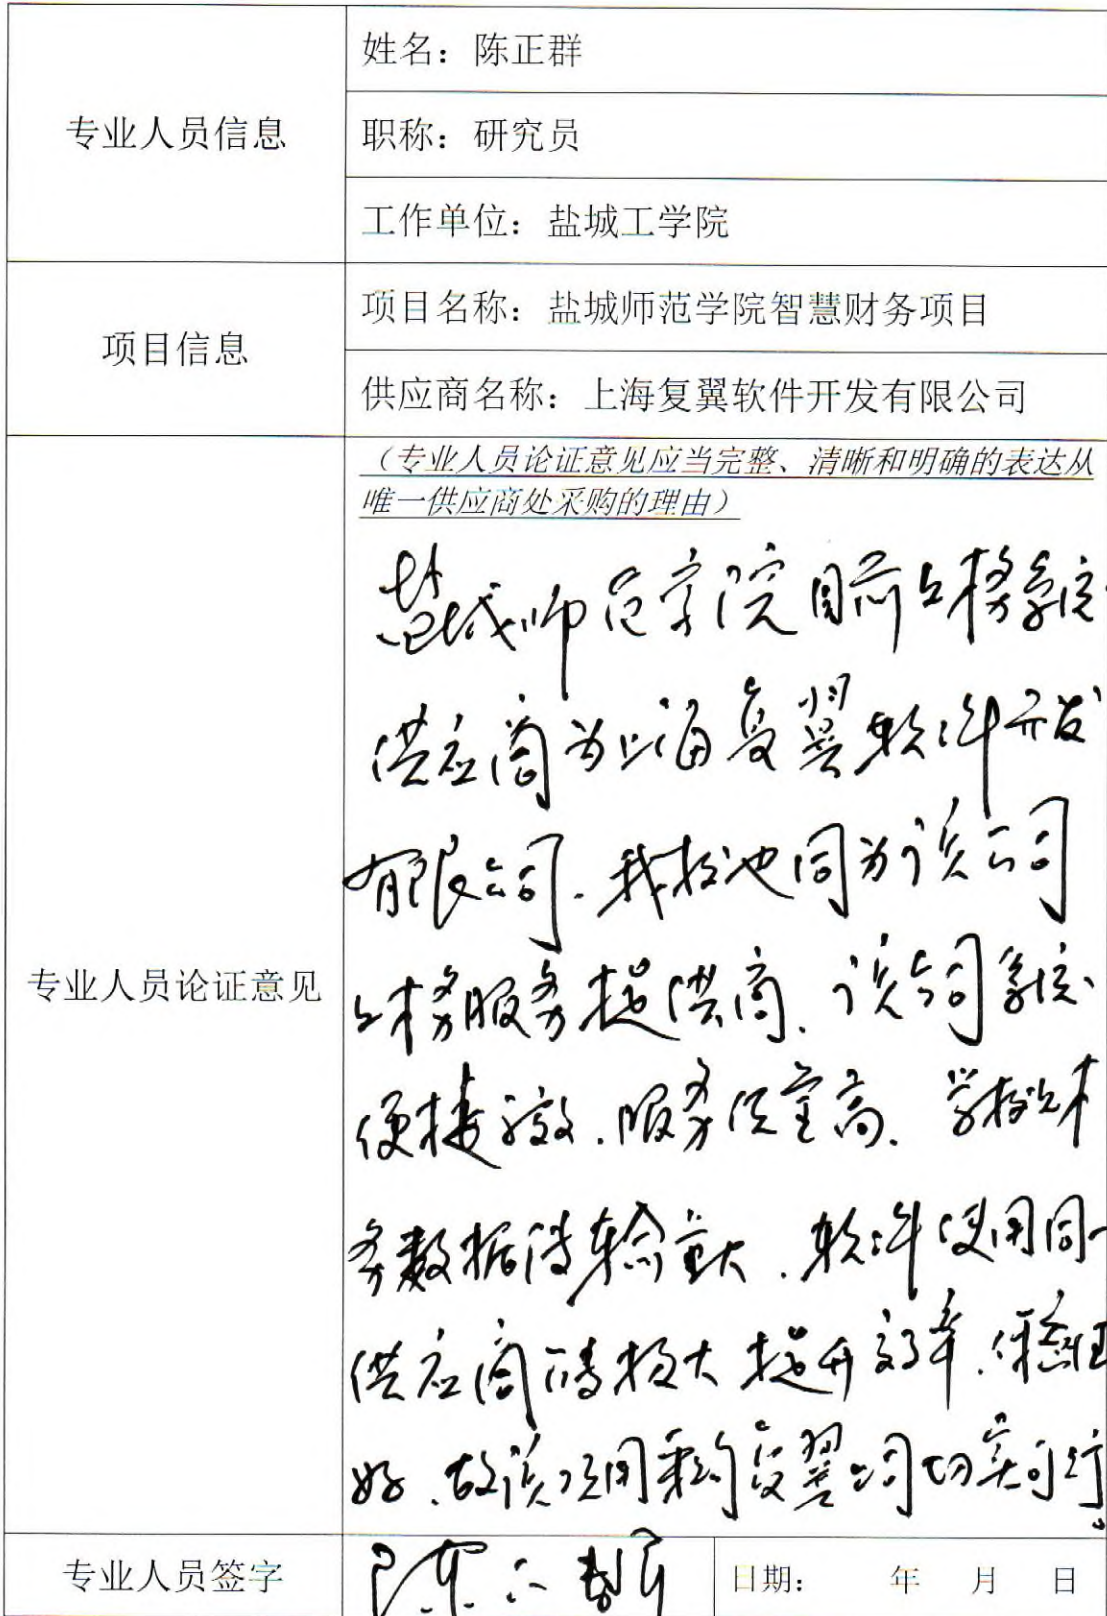 专业人员信息
姓名：陈正群
职称：研究员
工作单位：盐城工学院
项目信息
项目名称：盐城师范学院智慧财务项目
供应商名称：上海复翼软件开发有限公司
专业人员论证意见
（专业人员论证意见应当完整、清晰和明确的表达从
唯一供应商处采购的理由）
盐城师范学院目前财务系统
供应商为上海复翼软件开发
有限公司.我校也同为该公司
财务服务提供商.该公司系统
便捷高效.服务质量高.学校财
务数据传输量大.软件使用同一
供应商将极大提升效率.
好.故该项目采购复翼公司切实可行。
专业人员签字
日期： 年 月 日